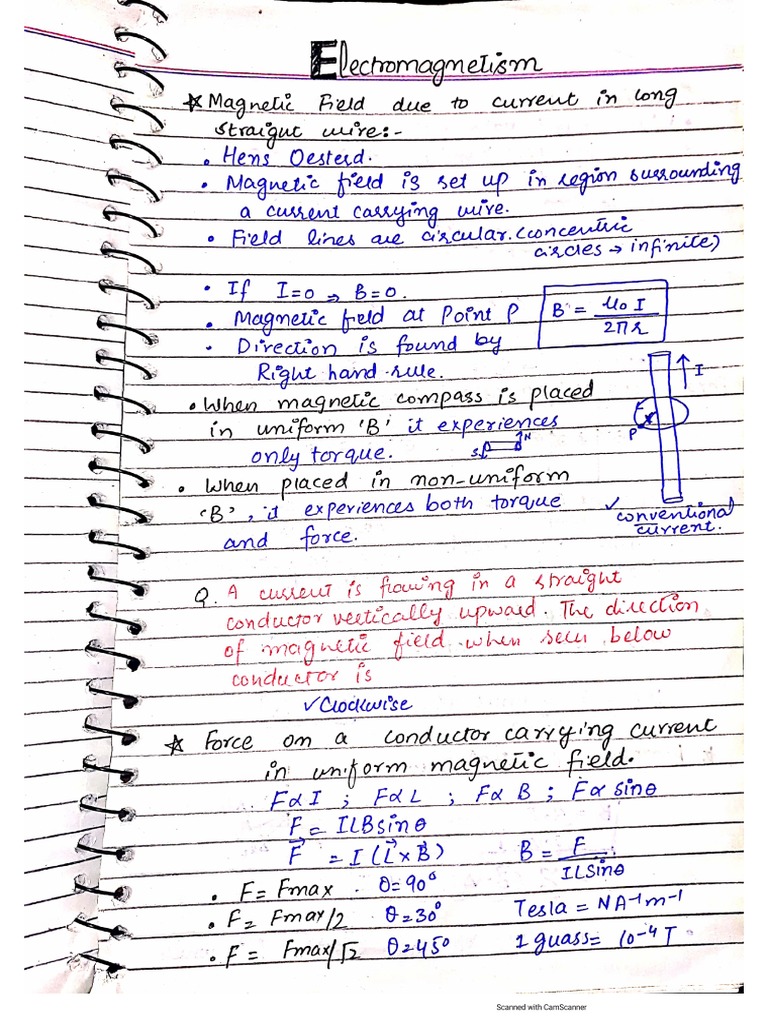 Electromagnetism
☆ Magnetic Field due to current in long
straight wire:-
• Hens Oesterd.
• Magnetic field is set up in region surrounding
a current carrying wire.
• Field lines are circular. (concentric
circles → infinite)
• If I=0 ⇒ B=0.
• Magnetic field at Point P
B = μ0 I / 2πr
• Direction is found by
Right hand rule.
I
• When magnetic compass is placed
in uniform 'B' it experiences
P
only torque.
S N
• When placed in non-uniform
'B', it experiences both torque
✓ conventional
current.
and force.
Q. A current is flowing in a straight
conductor vertically upward. The direction
of magnetic field when seen below
conductor is
✓ Clockwise
☆ Force on a conductor carrying current
in uniform magnetic field.
F∝I ; F∝L ; F∝B ; F∝ sinθ
F = ILBsinθ
F⃗ = I(L⃗×B⃗) B = F / ILsinθ
• F = Fmax θ=90°
• F= Fmax/2 θ=30° Tesla = NA⁻¹m⁻¹
• F = Fmax/√2 θ=45° 1 guass= 10⁻⁴T
Scanned with CamScanner